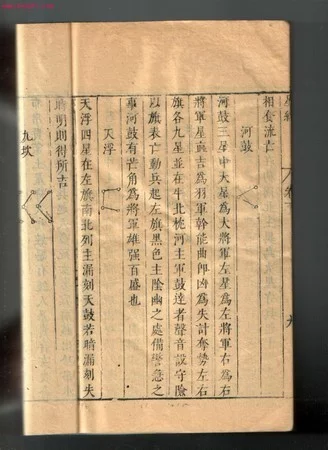 星經
相套流吉
河鼓
河鼓三星中大星為大將軍左星為左將軍右為右
將軍星直吉為羽軍幹能曲即凶為失計奪勢左右
旗各九星並在牛北枕河主軍鼓達者聲音設守險
以旗表亡動兵起左旗黑色主陰幽之處備警急之
事河鼓有芒角為將軍雄強百盛也
天浮
天浮四星在左旗南北列主漏刻天鼓若暗漏刻失
時明則得所吉
九坎